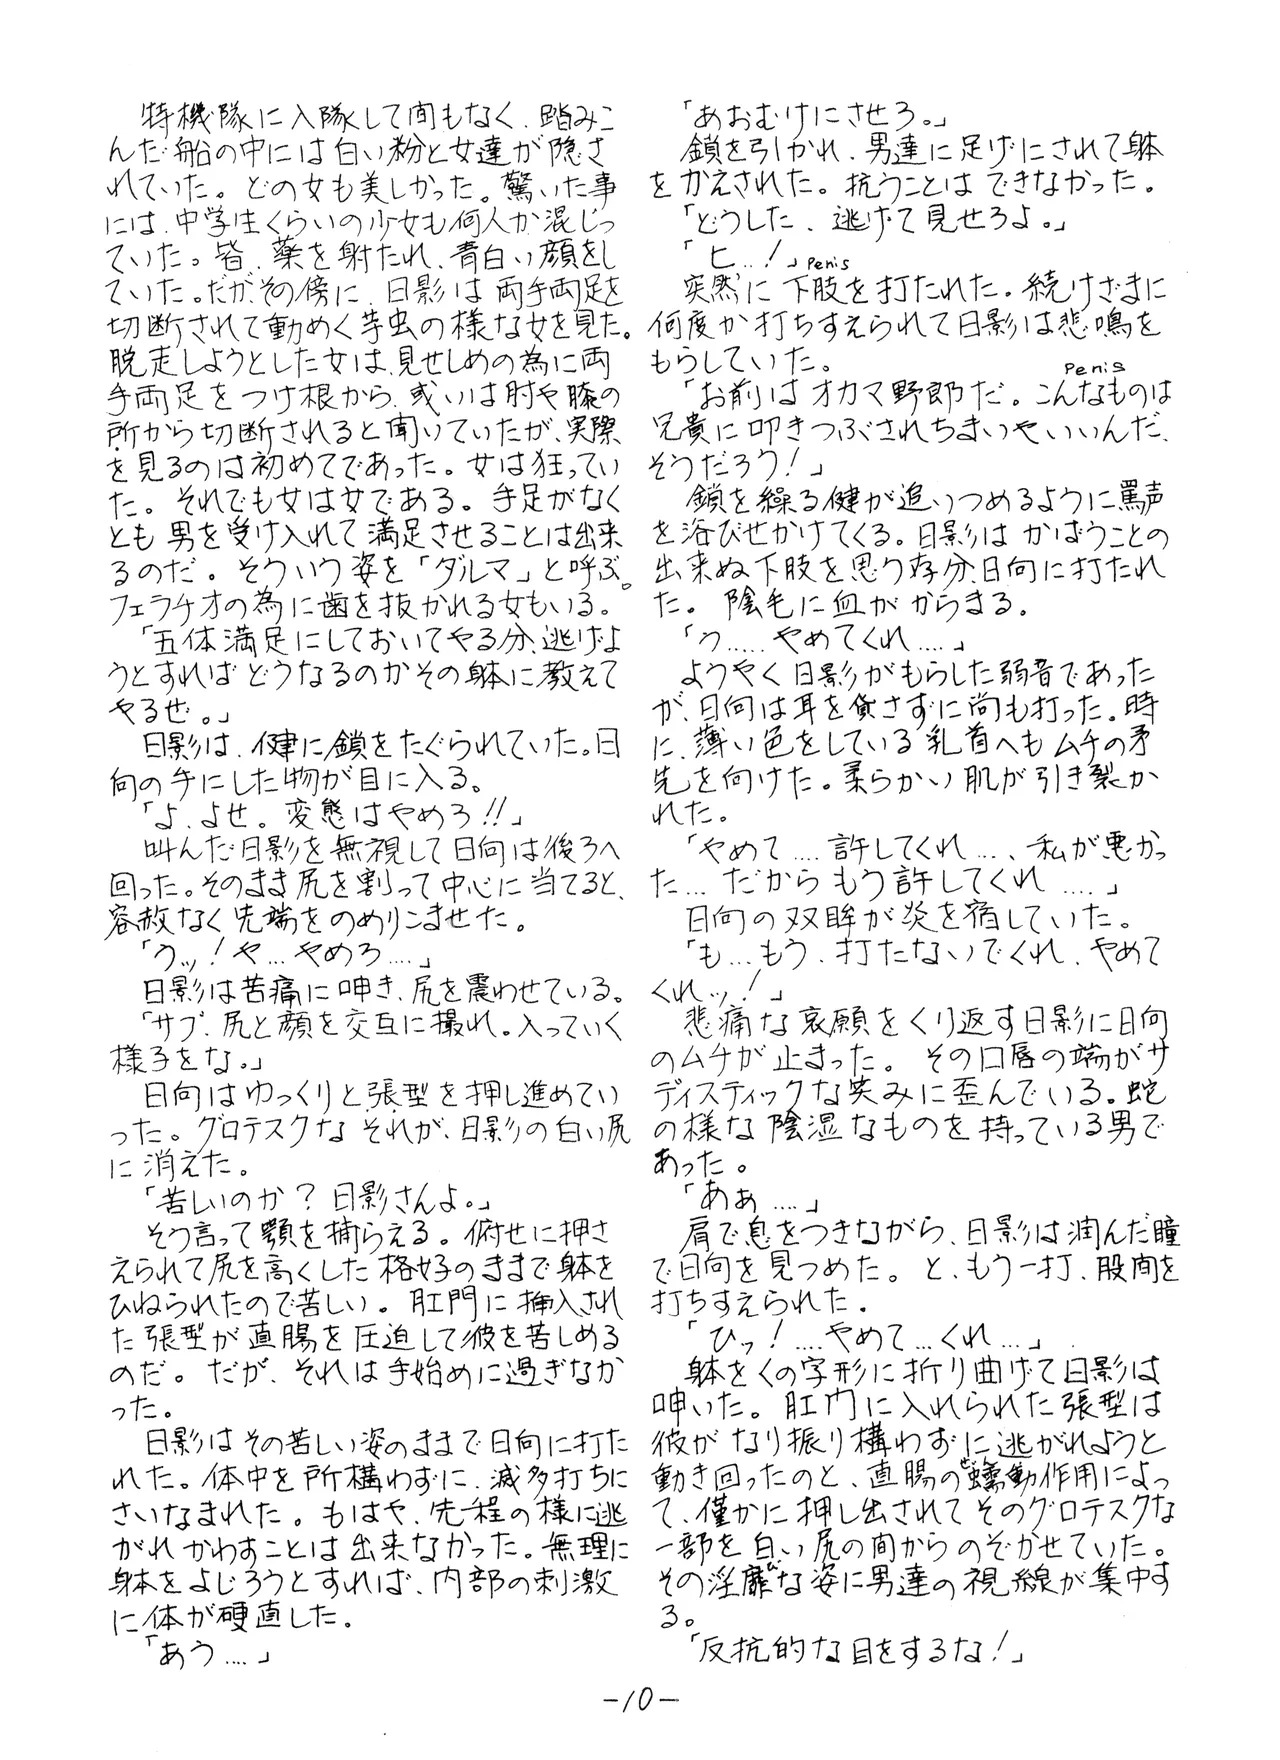 特機隊に入隊して間もなく、踏みこ
んだ船の中には白い粉と女達が隠さ
れていた。どの女も美しかった。驚いた事
には、中学生くらいの少女も何人か混じっ
ていた。皆、薬を射たれ、青白い顔をし
ていた。だが、その傍に、日影は両手両足を
切断されて動めく芋虫の様な女を見た。
脱走しようとした女は、見せしめの為に両
手両足をつけ根から、或いは肘や膝の
所から切断されると聞いていたが、実際
を見るのは初めてであった。女は狂ってい
た。それでも女は女である。手足がなく
とも男を受け入れて満足させることは出来
るのだ。そういう姿を「ダルマ」と呼ぶ。
フェラチオの為に歯を抜かれる女もいる。
「五体満足にしておいてやる分、逃げよ
うとすればどうなるのかその躰に教えて
やるぜ。」
日影は、健に鎖をたぐられていた。日
向の手にした物が目に入る。
「よ、よせ。変態はやめろ!!」
叫んだ日影を無視して日向は後ろへ
回った。そのまま尻を割って中心に当てると、
容赦なく先端をのめりこませた。
「うッ!や…やめろ….」
日影は苦痛に呻き、尻を震わせている。
「サブ、尻と顔を交互に撮れ。入っていく
様子をな。」
日向はゆっくりと張型を押し進めてい
った。グロテスクなそれが、日影の白い尻
に消えた。
「苦しいのか?日影さんよ。」
そう言って顎を捕らえる。俯せに押さ
えられて尻を高くした格好のままで躰を
ひねられたので苦しい。肛門に挿入され
た張型が直腸を圧迫して彼を苦しめる
のだ。だが、それは手始めに過ぎなか
った。
日影はその苦しい姿のままで日向に打た
れた。体中を所構わずに、滅多打ちに
さいなまれた。もはや、先程の様に逃
がれかわすことは出来なかった。無理に
躰をよじろうとすれば、内部の刺激
に体が硬直した。
「あう….」
「あおむけにさせろ。」
鎖を引かれ、男達に足げにされて躰
をかえされた。抗うことはできなかった。
「どうした、逃げて見せろよ。」
「ヒ…!」
Penis
突然に下肢を打たれた。続けざまに
何度か打ちすえられて日影は悲鳴を
もらしていた。
Penis
「お前はオカマ野郎だ。こんなものは
兄貴に叩きつぶされちまいやいいんだ、
そうだろう!」
鎖を繰る健が追いつめるように罵声
を浴びせかけてくる。日影はかばうことの
出来ぬ下肢を思う存分、日向に打たれ
た。陰毛に血がからまる。
「う…..やめてくれ….」
ようやく日影がもらした弱音であった
が、日向は耳を貸さずに尚も打った。時
に、薄い色をしている乳首へもムチの矛
先を向けた。柔らかい肌が引き裂か
れた。
「やめて….許してくれ….、私が悪かっ
た…だからもう許してくれ….」
日向の双眸が炎を宿していた。
「も…もう、打たないでくれ、やめて
くれッ!」
悲痛な哀願をくり返す日影に日向
のムチが止まった。その口唇の端がサ
ディスティックな笑みに歪んでいる。蛇
の様な陰湿なものを持っている男で
あった。
「ああ….」
肩で息をつきながら、日影は潤んだ瞳
で日向を見つめた。と、もう一打、股間を
打ちすえられた。
「ひッ!….やめて…くれ…」
躰をくの字形に折り曲げて日影は
呻いた。肛門に入れられた張型は
彼がなり振り構わずに逃がれようと
動き回ったのと、直腸の蠕動作用によっ
て、僅かに押し出されてそのグロテスクな
一部を白い尻の間からのぞかせていた。
その淫靡な姿に男達の視線が集中す
る。
「反抗的な目をするな!」
-10-